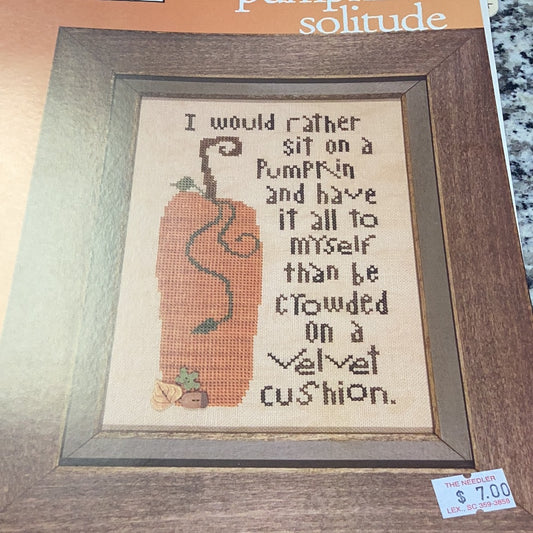 pumpkin
solitude
I would rather
sit on a
pumpkin
and have
it all to
myself
than be
crowded
on a
velvet
cushion.
THE NEEDLER
$ 7.00
LEX., SC 359-3858